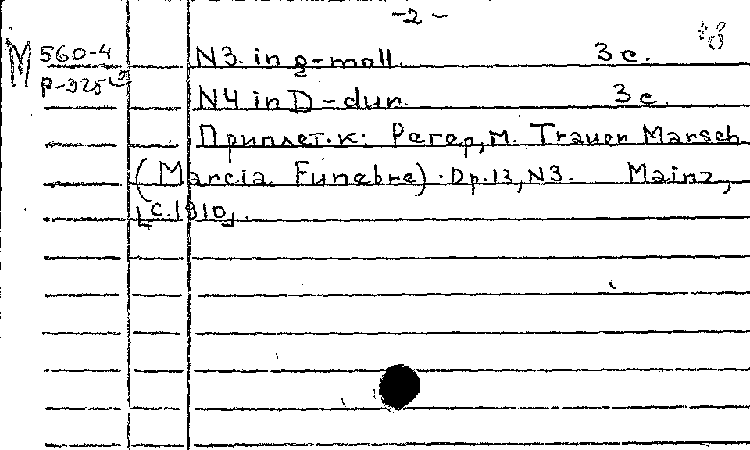 -2-
М 560-4 N3. in g-moll. 3 с.
Р-325 N4 in D-dur. 3 с
Приплет. к: Регер, М. Trauer Marsch
(Marcia Funebre). Op.13, N3. Mainz,
[с.1910].